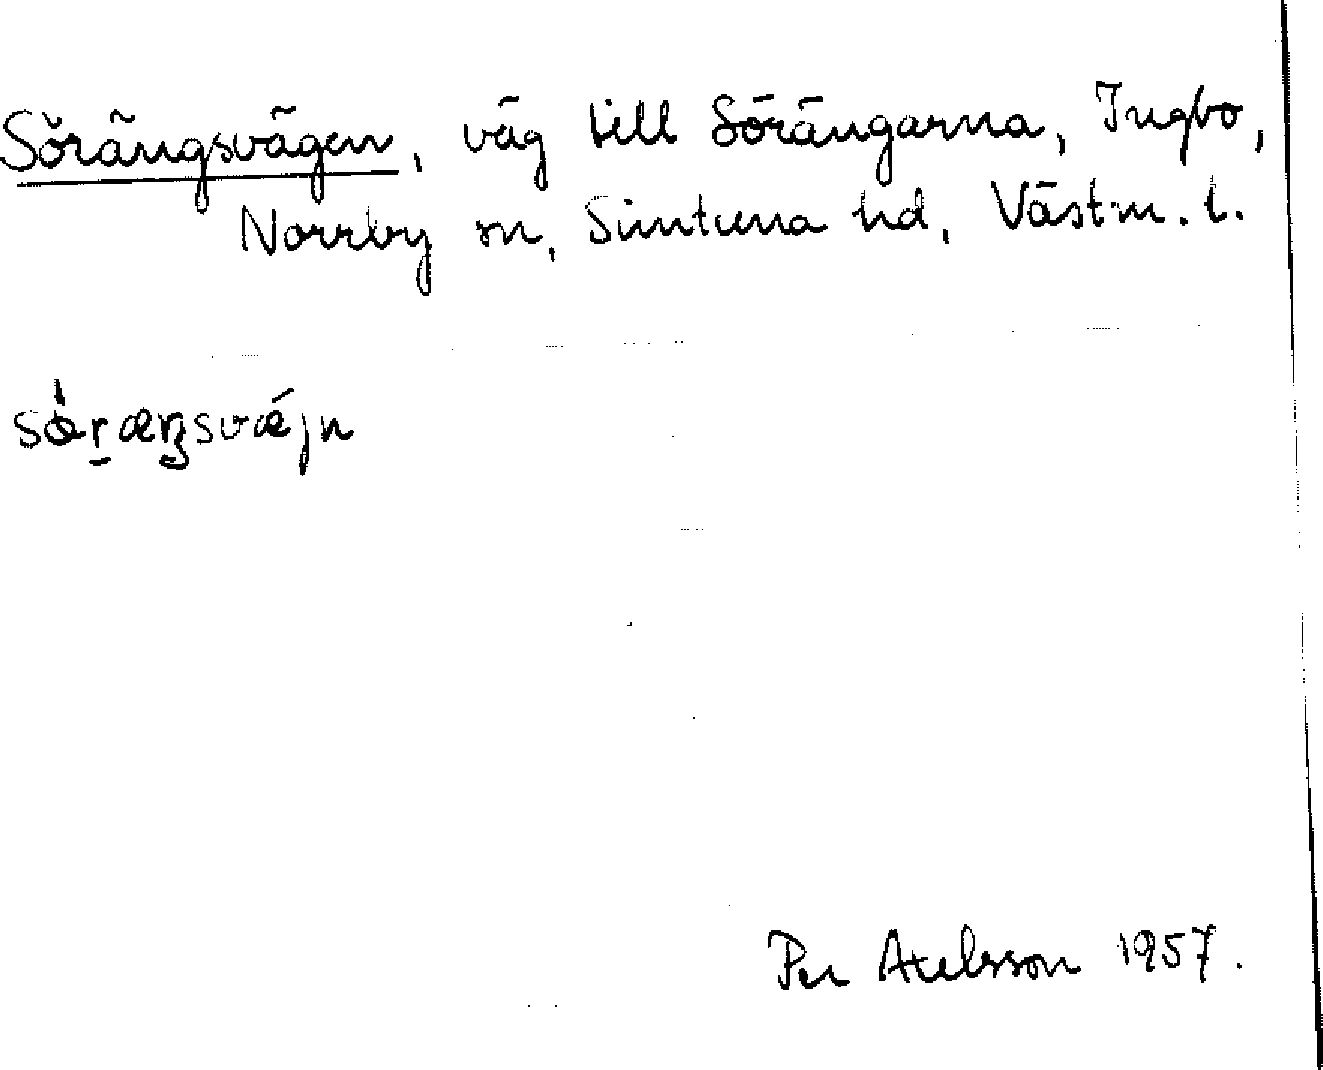 Sörängsvägen, väg till Sörängarna, Ingbo,
Norrby sn, Simtuna hd, Västm. l.
Per Axelsson 1957.